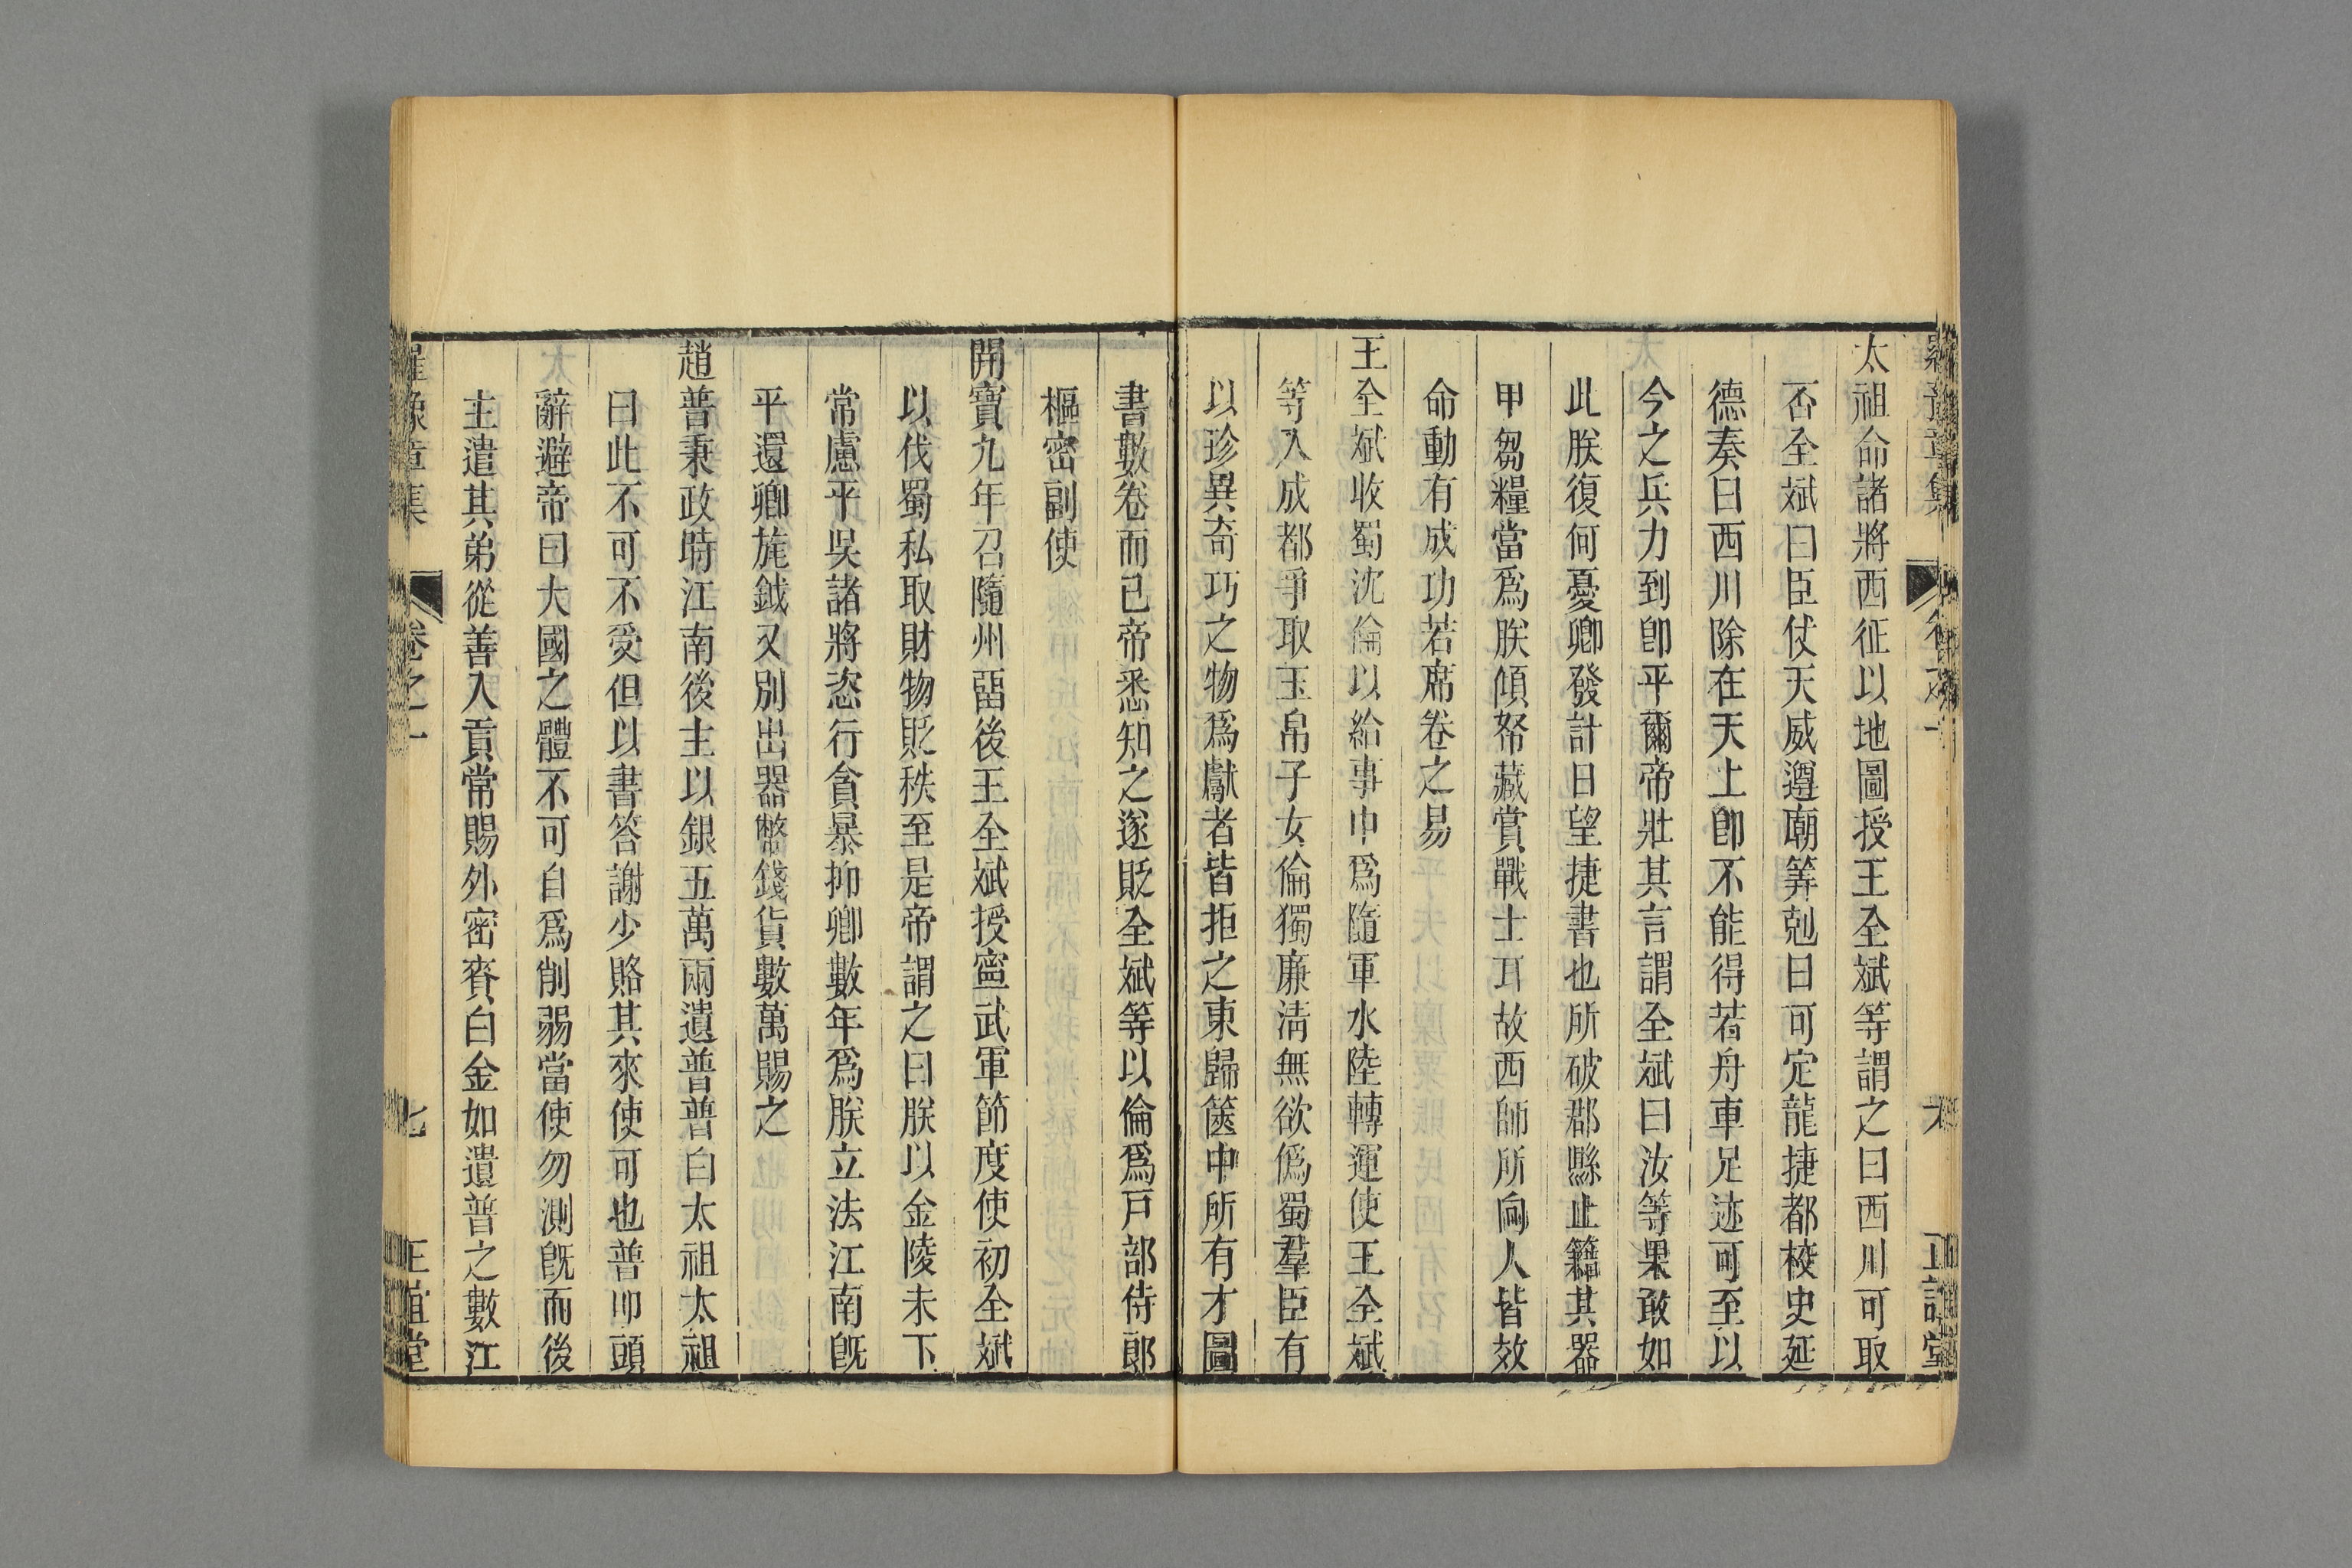 太祖命諸將西征以地圖授王全斌等謂之曰西川可取
否全斌曰臣仗天威遵廟筭剋日可定龍捷都校史延
德奏曰西川除在天上卽不能得若舟車足迹可至以
今之兵力到卽平爾帝壯其言謂全斌曰汝等果敢如
此朕復何憂卿發計日望捷書也所破郡縣止籍其器
甲芻糧當爲朕傾帑藏賞戰士耳故西師所向人皆效
命動有成功若席卷之易
王全斌收蜀沈倫以給事中爲隨軍水陸轉運使王全斌
等入成都爭取玉帛子女倫獨廉淸無欲僞蜀羣臣有
以珍異奇巧之物爲獻者皆拒之東歸篋中所有才圖
書數卷而已帝悉知之遂貶全斌等以倫爲戶部侍郎
樞密副使
開寶九年召隨州畱後王全斌授寧武軍節度使初全斌
以伐蜀私取財物貶秩至是帝謂之曰朕以金陵未下
常慮平吳諸將恣行貪暴抑卿數年爲朕立法江南旣
平還卿旄鉞又別出器幣錢貨數萬賜之
趙普秉政時江南後主以銀五萬兩遺普普白太祖太祖
曰此不可不受但以書答謝少賂其來使可也普叩頭
辭避帝曰大國之體不可自爲削弱當使勿測旣而後
主遣其弟從善入貢常賜外密賚白金如遺普之數江
羅豫章集
卷之一
七
正誼堂